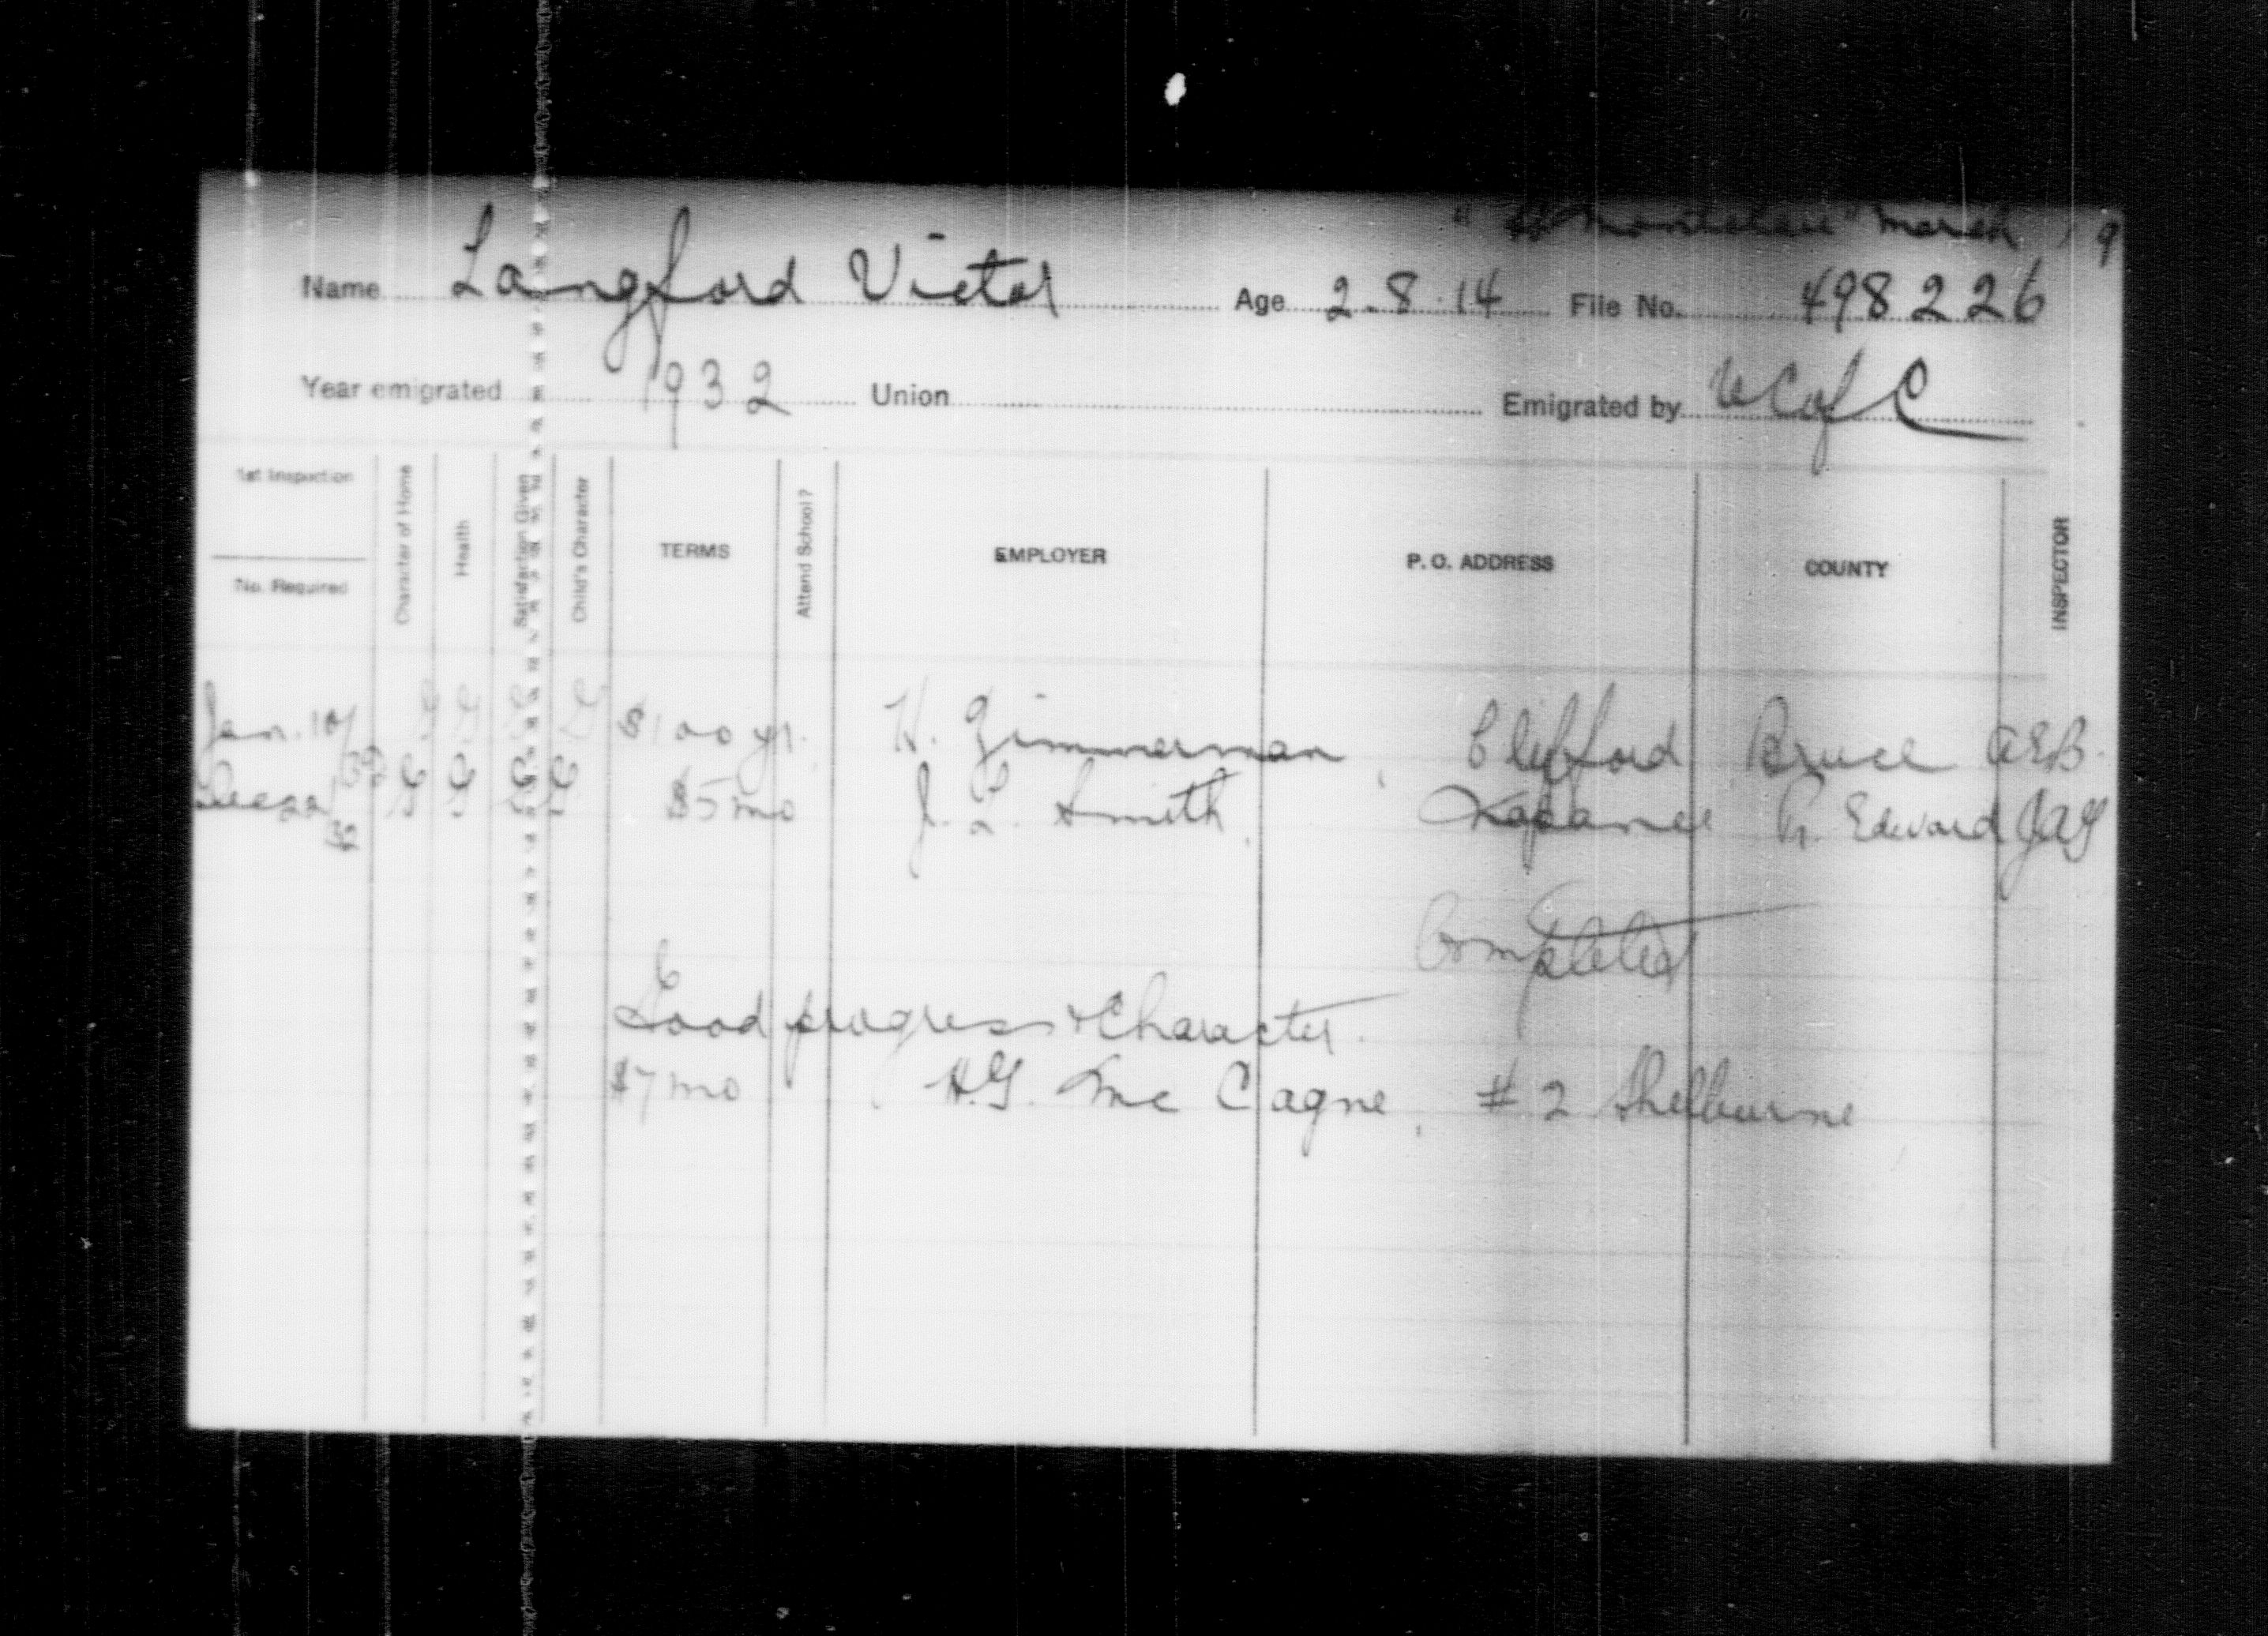 "SS Montclare" March 19
Name Langford Victor Age 2.8.14 File No. 498226
Year emigrated 1932 Union Emigrated by U C of C
1st Inspection
No. Required
Character of Home
Health
Satisfaction Given
Child's Character
TERMS
Attend School?
EMPLOYER
P. O. ADDRESS
COUNTY
INSPECTOR
Jan. G G G G $100 yr. H. Zimmerman, Clifford Bruce A.E.B.
32 G G G G $5 mo J. L. Smith, Napanee Pr. Edward JAG
Completed
Good progress & Character.
$7 mo H.G. Mc Cagne, # 2 Shelburne